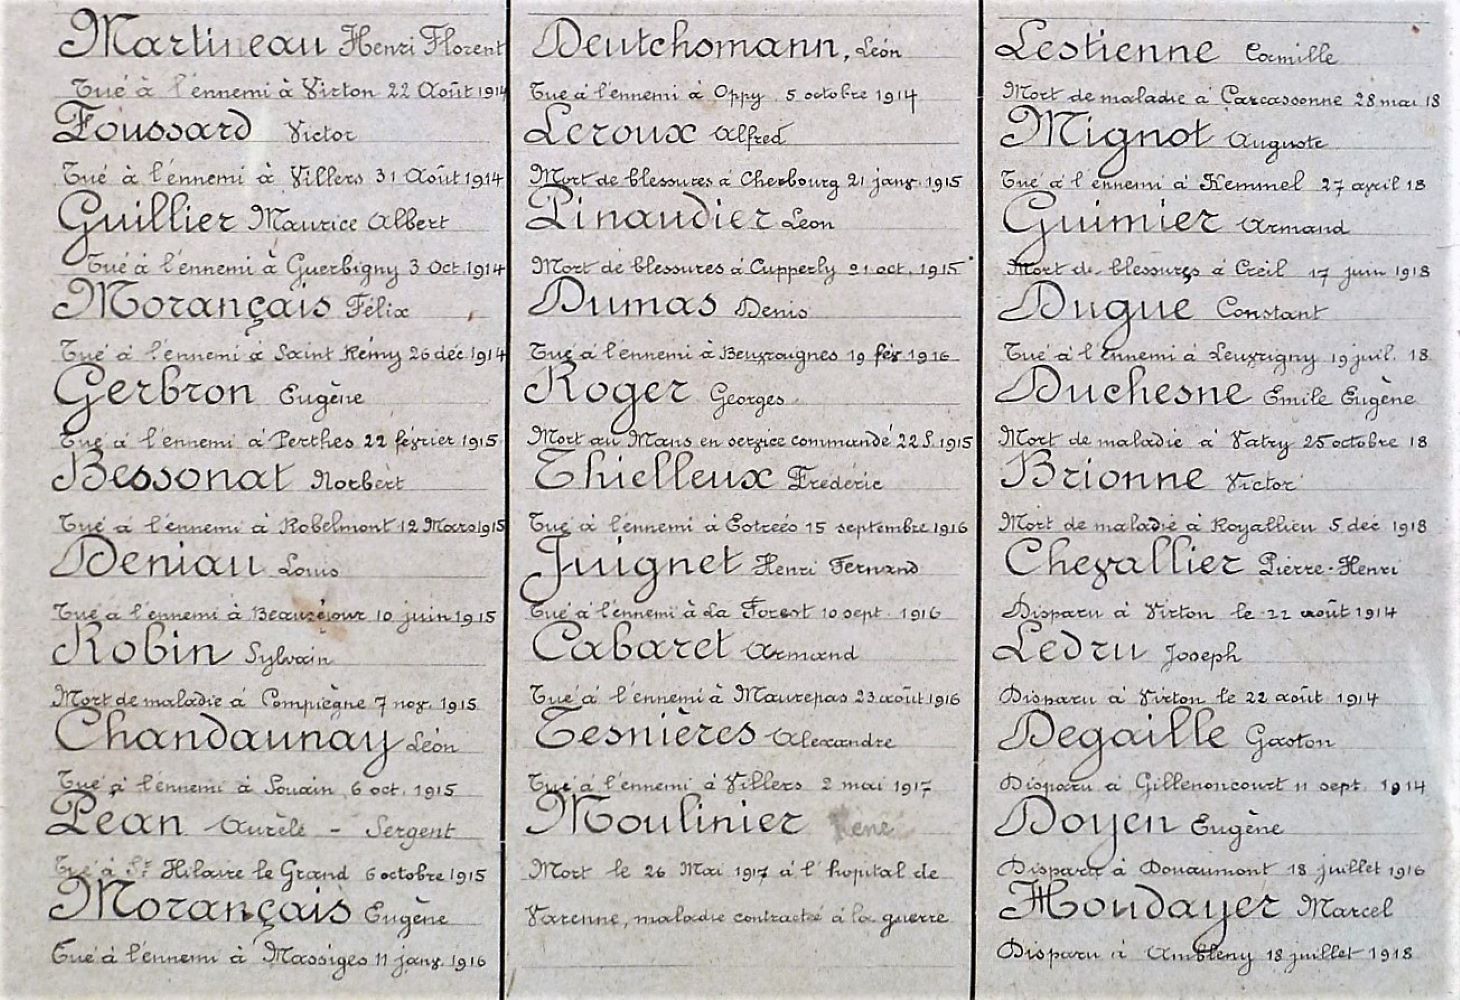 Martineau Henri Florent
Tué à l'énnemi à Virton 22 Août 1914
Foussard Victor
Tué à l'énnemi à Villers 31 Août 1914
Guillier Maurice Albert
Tué à l'énnemi à Guerbigny 3 Oct. 1914
Morançais Félix
Tué à l'énnemi à Saint Rémy 26 déc 1914
Gerbron Eugène
Tué à l'énnemi à Perthes 22 février 1915
Bessonat Norbert
Tué à l'énnemi à Robelmont 12 Mars 1915
Deniau Louis
Tué à l'énnemi à Beauséjour 10 juin 1915
Robin Sylvain
Mort de maladie à Compiègne 7 nov. 1915
Chandaunay Léon
Tué à l'énnemi à Souain 6 oct. 1915
Péan Aurèle - Sergent
Tué à St Hilaire le Grand 6 octobre 1915
Morançais Eugène
Tué à l'énnemi à Massiges 11 janv. 1916
Deutchsmann, Léon
Tué à l'énnemi à Oppy 5 octobre 1914
Leroux Alfred
Mort de blessures à Cherbourg 21 janv. 1915
Pinaudier Léon
Mort de blessures à Cupperly 21 oct. 1915
Dumas Denis
Tué à l'énnemi à Beuvraignes 19 fév 1916
Roger Georges
Mort au Mans en service commandé 22 S. 1915
Thielleux Frédéric
Tué à l'énnemi à Estrées 15 septembre 1916
Juignet Henri Fernand
Tué à l'énnemi à La Forest 10 sept. 1916
Cabaret Armand
Tué à l'énnemi à Maurepas 23 août 1916
Tesnières Alexandre
Tué à l'énnemi à Villers 2 mai 1917
Moulinier René
Mort le 26 Mai 1917 à l'hopital de
Varenne, maladie contractée à la guerre
Lestienne Camille
Mort de maladie à Carcassonne 28 mai 18
Mignot Auguste
Tué à l'énnemi à Kemmel 27 avril 18
Guimier Armand
Mort de blessures à Creil 17 juin 1918
Dugué Constant
Tué à l'énnemi à Leuvrigny 19 juil. 18
Duchesne Emile Eugène
Mort de maladie à Vatry 25 octobre 18
Brionne Victor
Mort de maladie à Royallieu 5 déc 1918
Chevallier Pierre-Henri
Disparu à Virton le 22 août 1914
Ledru Joseph
Disparu à Virton le 22 août 1914
Degaille Gaston
Disparu à Gillenoncourt 11 sept. 1914
Doyen Eugène
Disparu à Douaumont 18 juillet 1916
Houdayer Marcel
Disparu à Ambleny 18 juillet 1918